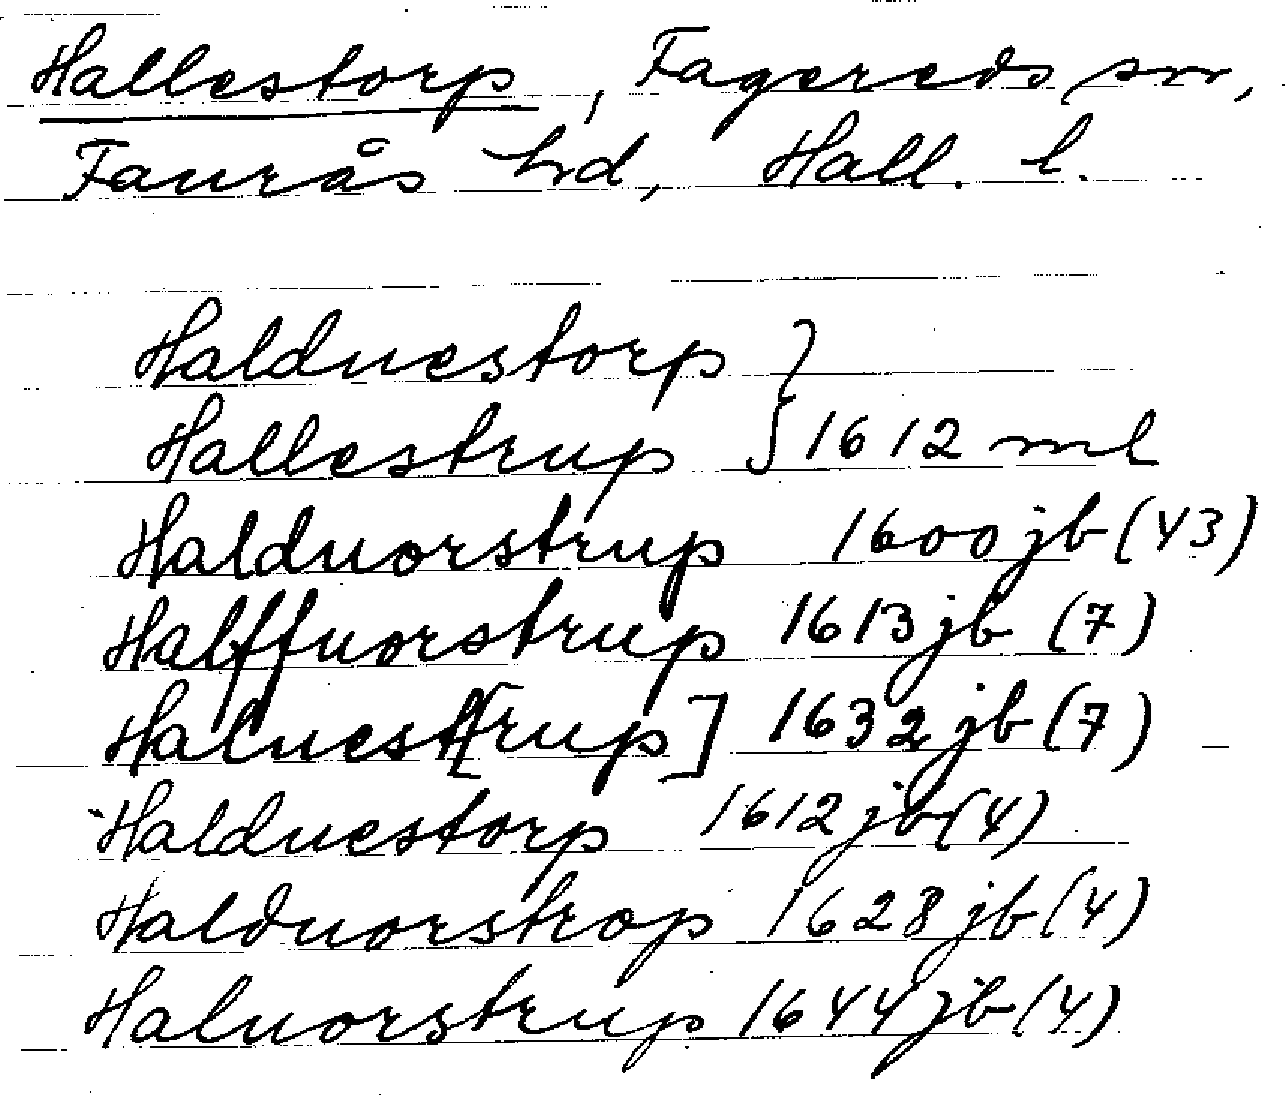 Hallestorp, Fagereds sn,
Faurås hd, Hall. l.
Halduestorp }
Hallestrup } 1612 ml
Halduorstrup 1600 jb (43)
Halffuorstrup 1613 jb (7)
Haluest[rup] 1632 jb (7)
Halduestorp 1612 jb (4)
Halduorstrop 1628 jb (4)
Haluorstrup 1644 jb (4)